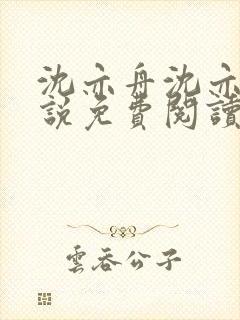 沈亦舟沈亦
說免費閱讀
雲吞公子